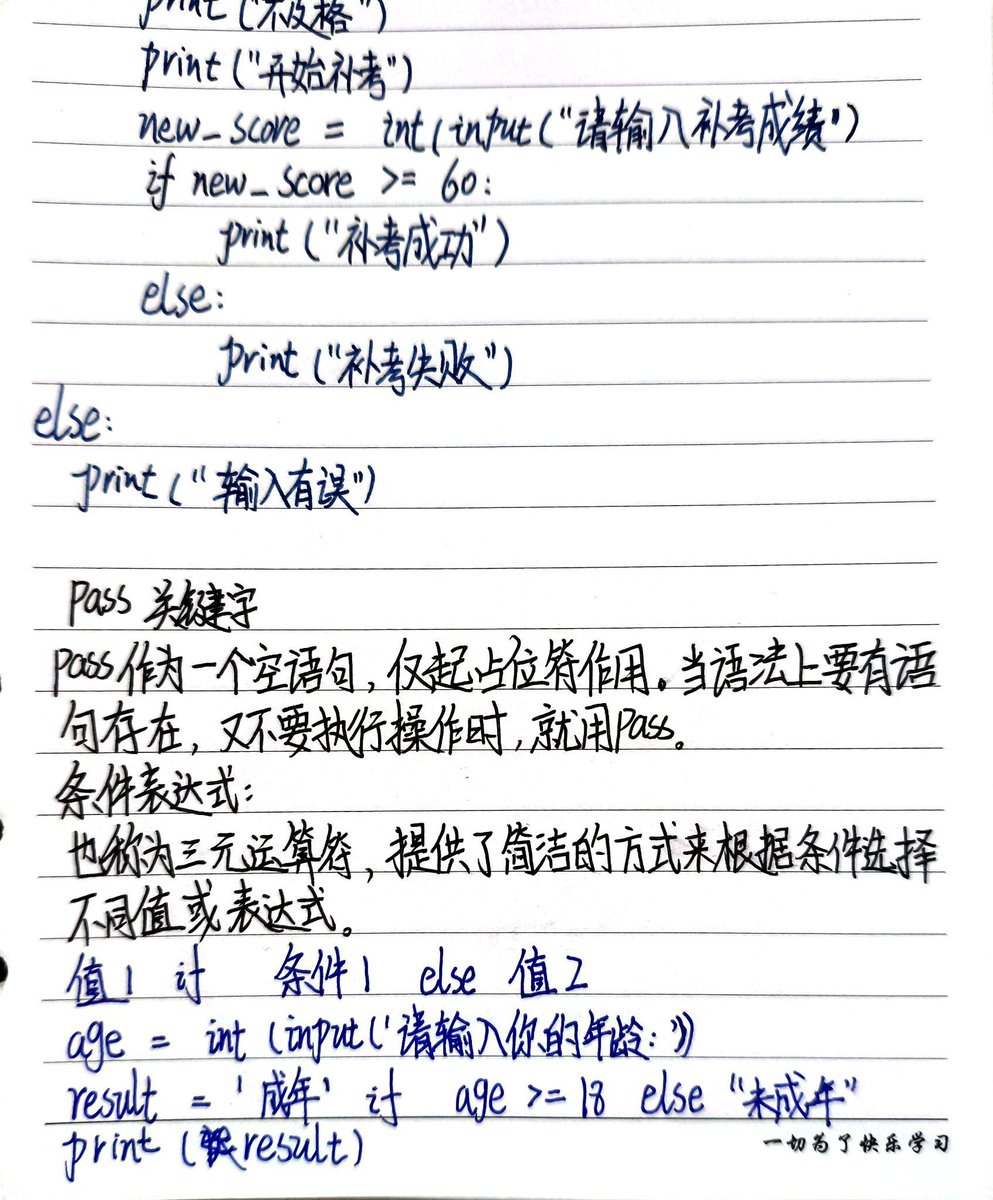 print ("不及格")
print ("开始补考")
new_score = int(input("请输入补考成绩")
if new_score >= 60:
print ("补考成功")
else:
print ("补考失败")
else:
print ("输入有误")
Pass 关键字
pass作为一个空语句,仅起占位符作用。当语法上要有语
句存在,又不要执行操作时,就用pass。
条件表达式:
也称为三元运算符,提供了简洁的方式来根据条件选择
不同值或表达式。
值1 if 条件1 else 值2
age = int (input('请输入你的年龄:'))
result = '成年' if age >= 18 else "未成年"
print (result)
一切为了快乐学习